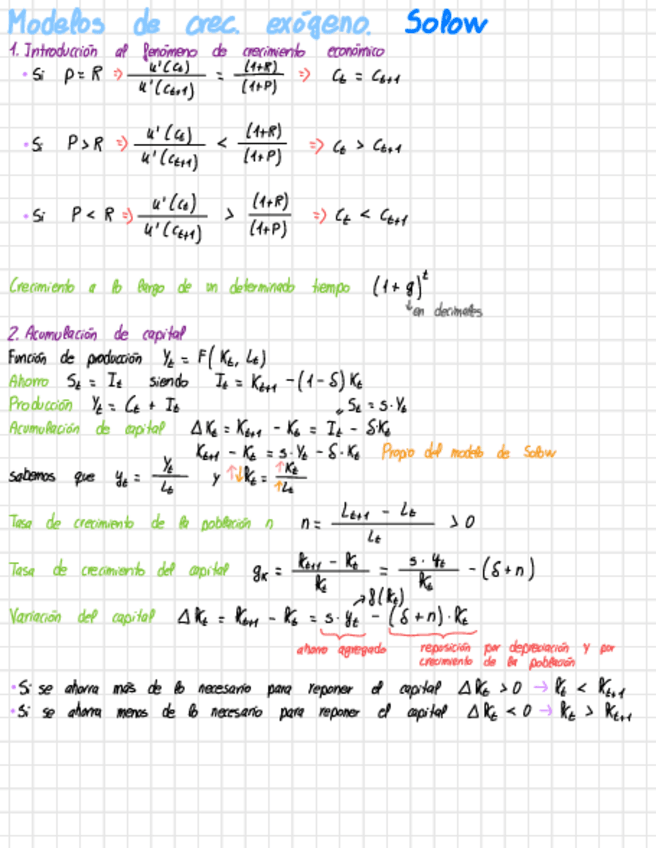 Modelos de crec. exógeno. Solow
1. Introducción al fenómeno de crecimiento económico
• Si P = R ⇒ u'(Ct) / u'(Ct+1) = (1+R) / (1+P) ⇒ Ct = Ct+1
• Si P > R ⇒ u'(Ct) / u'(Ct+1) < (1+R) / (1+P) ⇒ Ct > Ct+1
• Si P < R ⇒ u'(Ct) / u'(Ct+1) > (1+R) / (1+P) ⇒ Ct < Ct+1
Crecimiento a lo largo de un determinado tiempo (1 + g)^t
↓ en decimales
2. Acumulación de capital
Función de producción Yt = F(Kt, Lt)
Ahorro St = It siendo It = Kt+1 - (1 - δ) Kt
Producción Yt = Ct + It St = s·Yt
Acumulación de capital ΔKt = Kt+1 - Kt = It - δKt
Kt+1 - Kt = s·Yt - δ·Kt Propio del modelo de Solow
sabemos que yt = Yt / Lt y ↑↓kt = ↑Kt / ↑Lt
Tasa de crecimiento de la población n n = Lt+1 - Lt / Lt > 0
Tasa de crecimiento del capital gk = kt+1 - kt / kt = s·yt / kt - (δ+n)
↗ f(kt)
Variación del capital Δkt = kt+1 - kt = s·yt - (δ+n)·kt
ahorro agregado reposición por depreciación y por
crecimiento de la población
• Si se ahorra más de lo necesario para reponer el capital Δkt > 0 → kt < kt+1
• Si se ahorra menos de lo necesario para reponer el capital Δkt < 0 → kt > kt+1